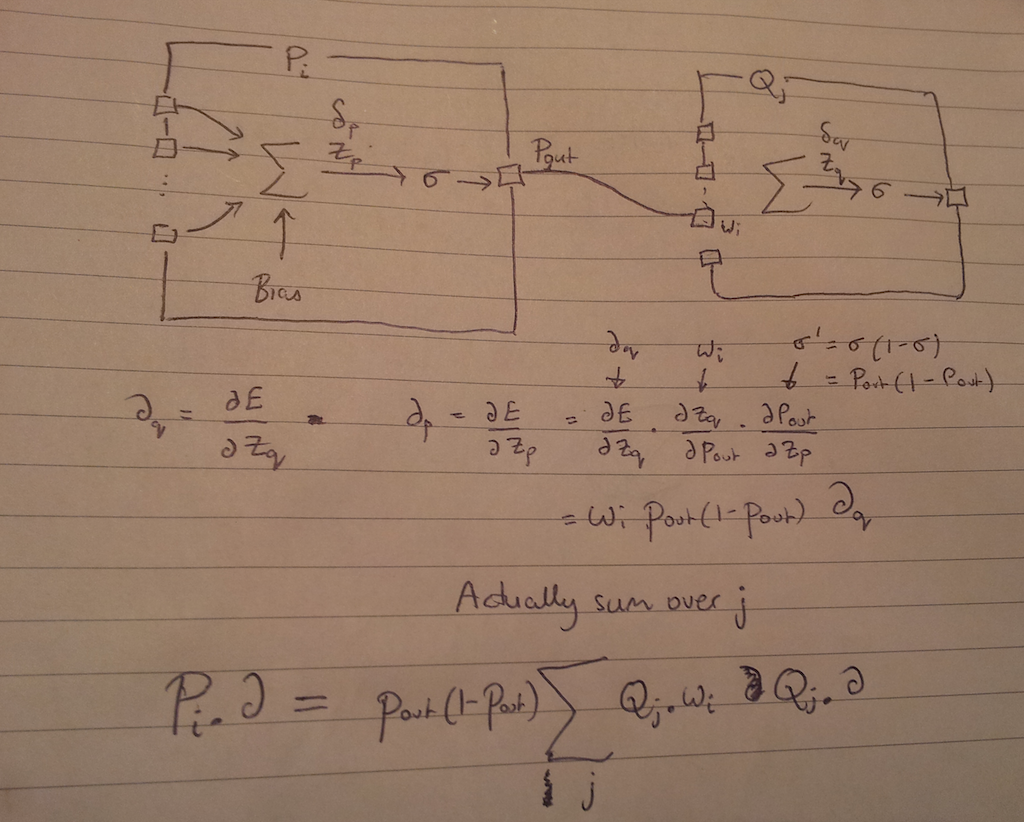 P_i
Q_j
δ_p
z_p
Σ → σ →
Bias
P_out
δ_q
z_q
Σ → σ →
w_i
∂_q w_i σ' = σ(1-σ)
↓ ↓ ↓ = P_out(1-P_out)
∂_q = ∂E/∂z_q
∂_p = ∂E/∂z_p = ∂E/∂z_q · ∂z_q/∂P_out · ∂P_out/∂z_p
= w_i P_out(1-P_out) ∂_q
Actually sum over j
P_i.∂ = P_out(1-P_out) Σ_j Q_j.w_i Q_j.∂